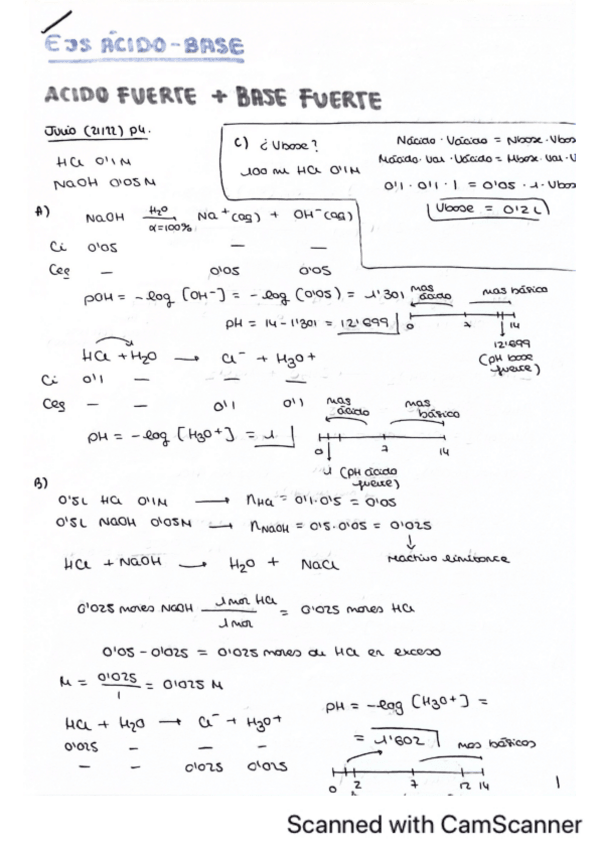 EJS ÁCIDO-BASE
ACIDO FUERTE + BASE FUERTE
Junio (21/22) P4.
HCl 0'1M
NaOH 0'05M
C) ¿Vbase?
100 ml HCl 0'1M
Nácido · Vácido = Nbase · Vbas
Mácido · val · Vácido = Mbase · val · V
0'1 · 0'1 · 1 = 0'05 · 1 · Vbas
Vbase = 0'2 L
A)
NaOH H2O α=100% Na+(aq) + OH-(aq)
Ci 0'05 — —
Ceq — 0'05 0'05
pOH = -log [OH-] = -log (0'05) = 1'301
pH = 14 - 1'301 = 12'699
mas ácido mas básico
0 7 14
12'699
(pH base fuerte)
HCl + H2O → Cl- + H3O+
Ci 0'1 — — —
Ceq — — 0'1 0'1
pH = -log [H3O+] = 1
mas ácido mas básico
0 7 14
1 (pH ácido fuerte)
B)
0'5L HCl 0'1M → nHCl = 0'1·0'5 = 0'05
0'5L NaOH 0'05M → nNaOH = 0'5·0'05 = 0'025
reactivo limitante
HCl + NaOH → H2O + NaCl
0'025 moles NaOH 1 mol HCl / 1 mol = 0'025 moles HCl
0'05 - 0'025 = 0'025 moles de HCl en exceso
M = 0'025 / 1 = 0'025 M
HCl + H2O → Cl- + H3O+
0'025 — — —
— — 0'025 0'025
pH = -log [H3O+] =
= 1'602
mas básicos
0 2 7 12 14
1
Scanned with CamScanner